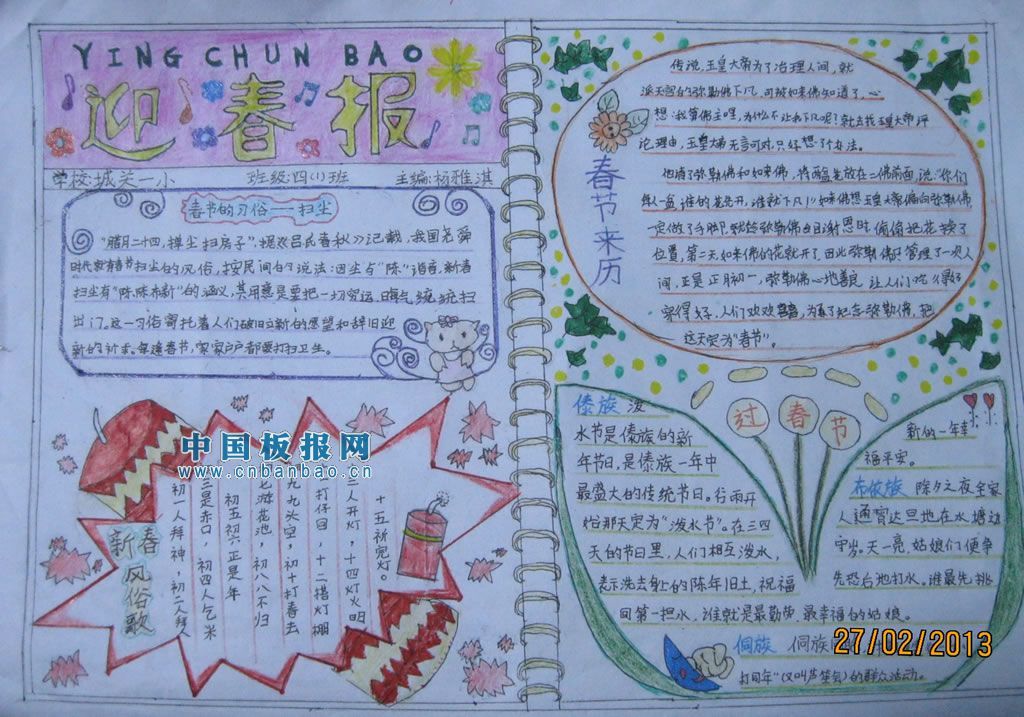 YING CHUN BAO
迎春报
学校:城关一小 班级:四(1)班 主编:杨雅淇
春节的习俗——扫尘
"腊月二十四,掸尘扫房子",据《吕氏春秋》记载,我国尧舜
时代就有春节扫尘的风俗,按民间的说法:因尘与"陈"谐音,新春
扫尘有"陈陈布新"的涵义,其用意是要把一切穷运、晦气统统扫
出门。这一习俗寄托着人们破旧立新的愿望和辞旧迎
新的祈求。每逢春节,家家户户都要打扫卫生。
中国板报网
www.cnbanbao.cn
新春风俗歌
初一人拜神,初二人拜人
三是赤口,初四人乞米
初五初六正是年
七游花池,初八八不归
九九头空,初十打春去
打仔目,十二搭灯棚
三人开灯,十四灯火明
十五祈完灯。
春节来历
传说,玉皇大帝为了治理人间,就
派天宫的弥勒佛下凡,可被如来佛知道了,心
想:我算佛主哩,为什么不让我下凡呢?就去找玉皇大帝评
论理由,玉皇大帝无言可对,只好想了办法。
他请弥勒佛和如来佛,将 放在二佛前面,说:"你们
每人一盆,谁的花先开,谁就下凡!"如来佛想玉皇大帝偏向弥勒佛
一定做了手脚,就趁弥勒佛白谢恩时偷偷把花换了
位置,第二天如来佛的花就开了,因此弥勒佛只管理了一天人
间,正是正月初一,弥勒佛心地善良,让人们吃
穿得好,人们欢欢喜喜,为了纪念弥勒佛,把
这天定为"春节"。
过春节
傣族 泼
水节是傣族的新
年节日,是傣族一年中
最盛大的传统节日。谷雨开
始那天定为"泼水节"。在三四
天的节日里,人们相互泼水,
表示洗去身上的陈年旧土,祝福
新的一年幸
福平安。
布依族 除夕之夜全家
人通宵达旦地在水塘边
守岁。天一亮,姑娘们便争
先恐后地打水。谁最先挑
回第一担水,谁就是最勤劳、最幸福的姑娘。
侗族 侗族
打同年"(又叫芦笙会)的群众活动。
27/02/2013